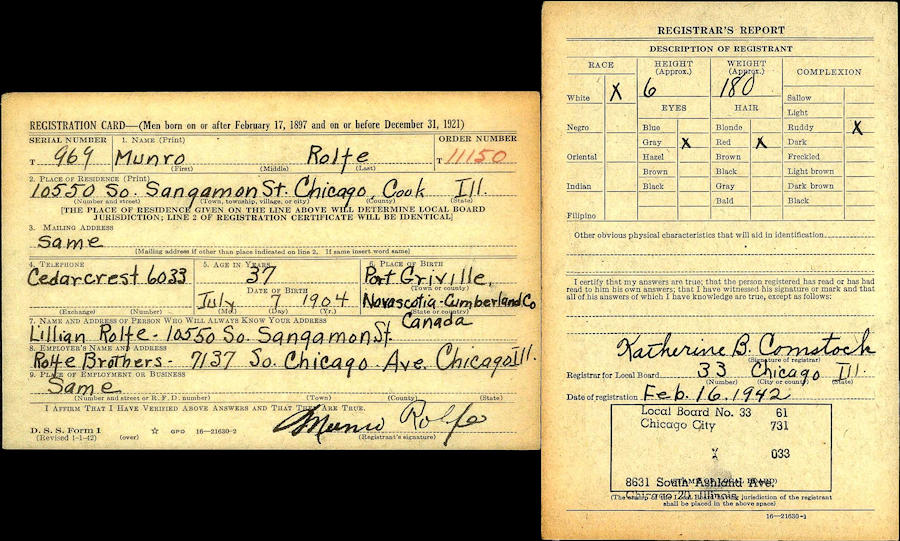 REGISTRATION CARD—(Men born on or after February 17, 1897 and on or before December 31, 1921)
SERIAL NUMBER 1. NAME (Print) ORDER NUMBER
T 969 Munro Rolfe T 11150
(First) (Middle) (Last)
2. PLACE OF RESIDENCE (Print)
10550 So. Sangamon St. Chicago Cook Ill.
(Number and street) (Town, township, village, or city) (County) (State)
[THE PLACE OF RESIDENCE GIVEN ON THE LINE ABOVE WILL DETERMINE LOCAL BOARD
JURISDICTION; LINE 2 OF REGISTRATION CERTIFICATE WILL BE IDENTICAL]
3. MAILING ADDRESS
Same
[Mailing address if other than place indicated on line 2. If same insert word same]
4. TELEPHONE 5. AGE IN YEARS 6. PLACE OF BIRTH
Cedarcrest 6033 37 Port Griville,
(Town or county)
DATE OF BIRTH
July 7 1904 Novascotia-Cumberland Co
(Exchange) (Number) (Mo.) (Day) (Yr.) (State or country)
Canada
7. NAME AND ADDRESS OF PERSON WHO WILL ALWAYS KNOW YOUR ADDRESS
Lillian Rolfe - 10550 So. Sangamon St.
8. EMPLOYER'S NAME AND ADDRESS
Rolfe Brothers - 7137 So. Chicago Ave. Chicago Ill.
9. PLACE OF EMPLOYMENT OR BUSINESS
Same
(Number and street or R. F. D. number) (Town) (County) (State)
I AFFIRM THAT I HAVE VERIFIED ABOVE ANSWERS AND THAT THEY ARE TRUE.
Munro Rolfe
D. S. S. Form 1
(Revised 1-1-42) (over) ☆ GPO 16—21630-2 (Registrant's signature)
REGISTRAR'S REPORT
DESCRIPTION OF REGISTRANT
RACE HEIGHT (Approx.) WEIGHT (Approx.) COMPLEXION
White X 6 180
Sallow
EYES HAIR Light
Negro Blue Blonde Ruddy X
Gray X Red X Dark
Oriental Hazel Brown Freckled
Brown Black Light brown
Indian Black Gray Dark brown
Bald Black
Filipino
Other obvious physical characteristics that will aid in identification
I certify that my answers are true; that the person registered has read or has had
read to him his own answers; that I have witnessed his signature or mark and that
all of his answers of which I have knowledge are true, except as follows:
Katherine B. Comstock
(Signature of registrar)
Registrar for Local Board 33 Chicago Ill.
(Number) (City or county) (State)
Date of registration Feb. 16. 1942
Local Board No. 33 61
Chicago City 731
033
8631 South Ashland Ave.
Chicago 20 Illinois
(STAMP OF LOCAL BOARD)
(The stamp of the Local Board having jurisdiction of the registrant
shall be placed in the above space)
16—21630-1